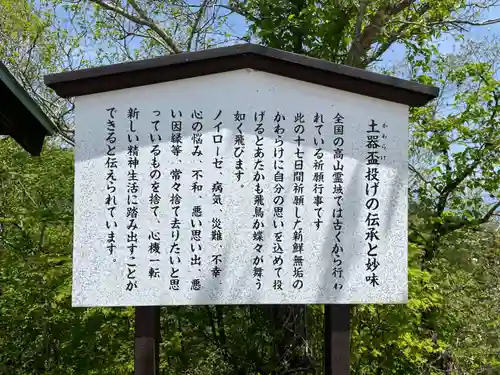 かわらけ
土器盃投げの伝承と妙味
全国の高山霊域では古くから行わ
れている祈願行事です
此の17日間祈願した新鮮無垢の
かわらけに自分の思いを込めて投
げるとあたかも飛鳥か蝶々が舞う
如く飛びます。
ノイローゼ、病気、災難、不幸、
心の悩み、不和、悪い思い出、悪
い因縁等、常々捨て去りたいと思
っているものを捨て、心機一転
新しい精神生活に踏み出すことが
できると伝えられています。